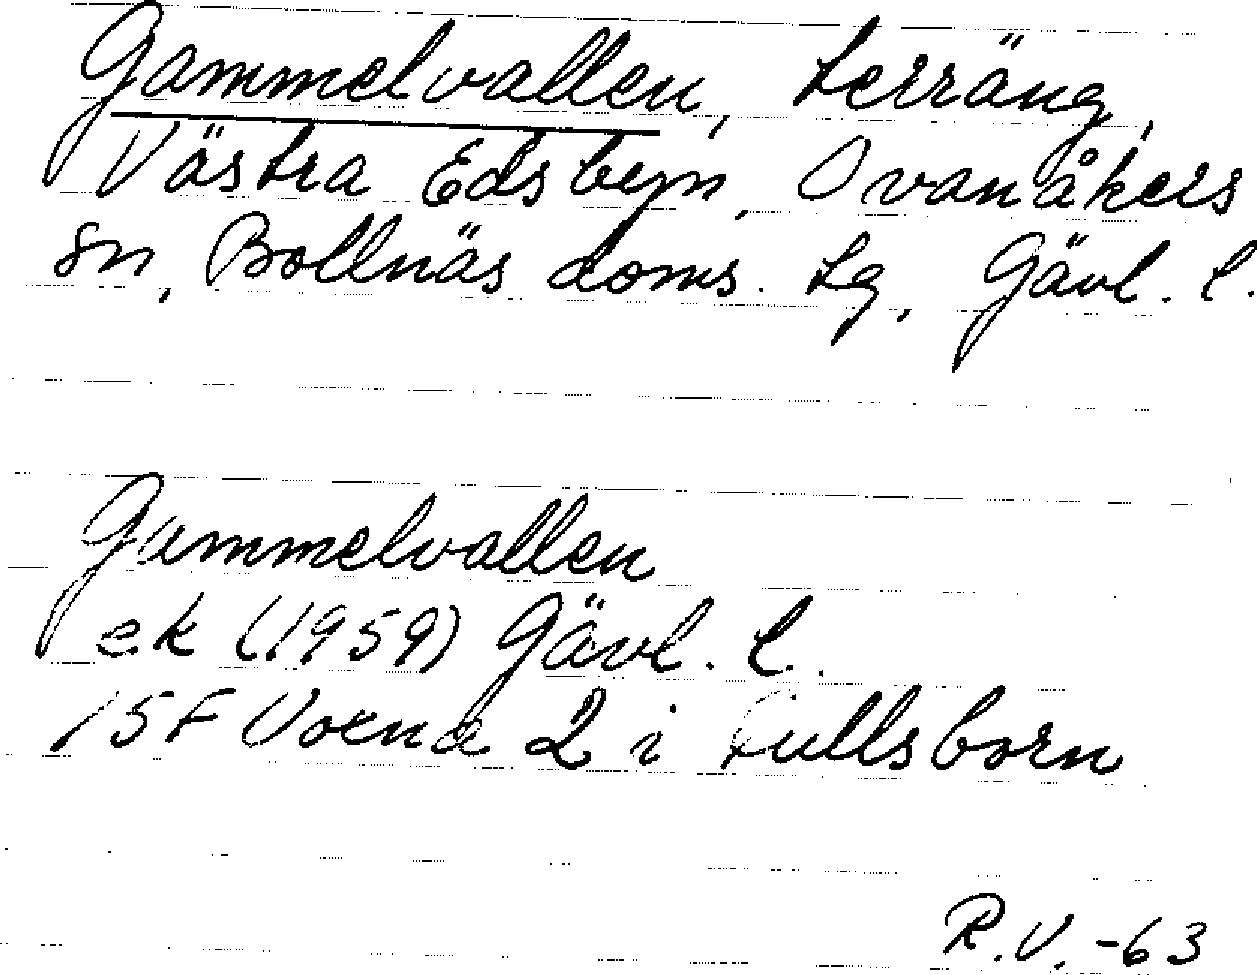 Gammelvallen, terräng,
Västra Edsbyn, Ovanåkers
sn, Bollnäs doms. tg, Gävl. l.
Gammelvallen
ek (1959) Gävl. l.
15F Voxna 2 i
R.V. -63